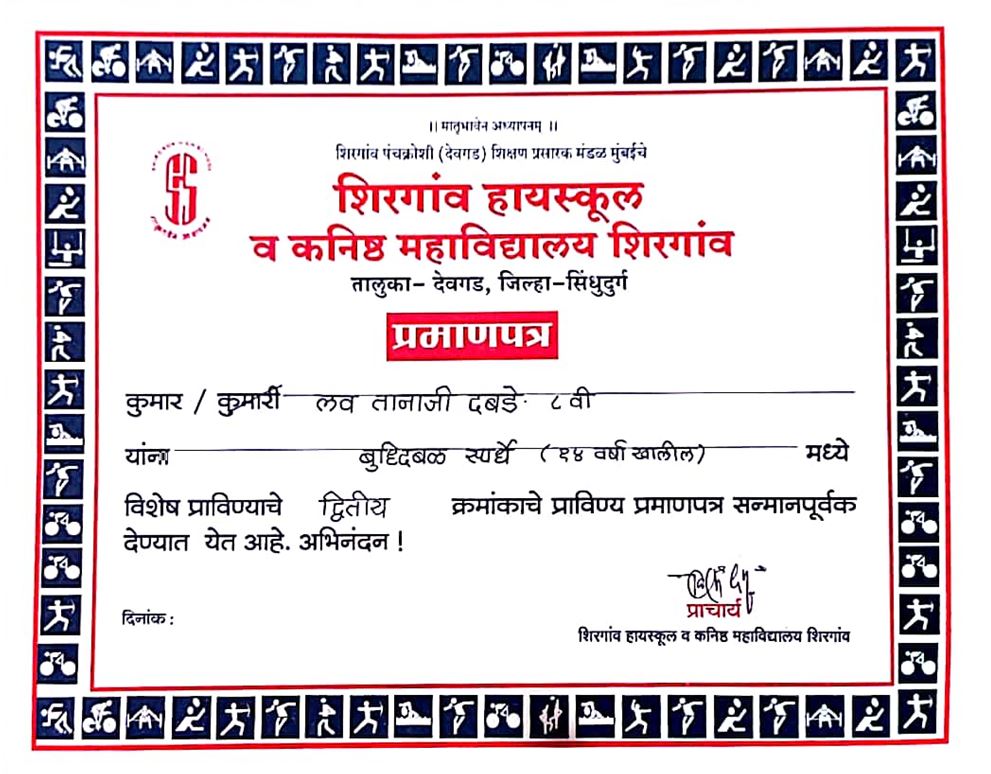 || मातृभावेन अध्यापनम् ||
शिरगांव पंचक्रोशी (देवगड) शिक्षण प्रसारक मंडळ मुंबईचे
शिरगांव हायस्कूल
व कनिष्ठ महाविद्यालय शिरगांव
तालुका- देवगड, जिल्हा-सिंधुदुर्ग
प्रमाणपत्र
कुमार / कुमारी लव तानाजी दबडे. ८ वी
यांना बुध्दिबळ स्पर्धे (१४ वर्षा खालील) मध्ये
विशेष प्राविण्याचे द्वितीय क्रमांकाचे प्राविण्य प्रमाणपत्र सन्मानपूर्वक
देण्यात येत आहे. अभिनंदन !
प्राचार्य
दिनांक :
शिरगांव हायस्कूल व कनिष्ठ महाविद्यालय शिरगांव